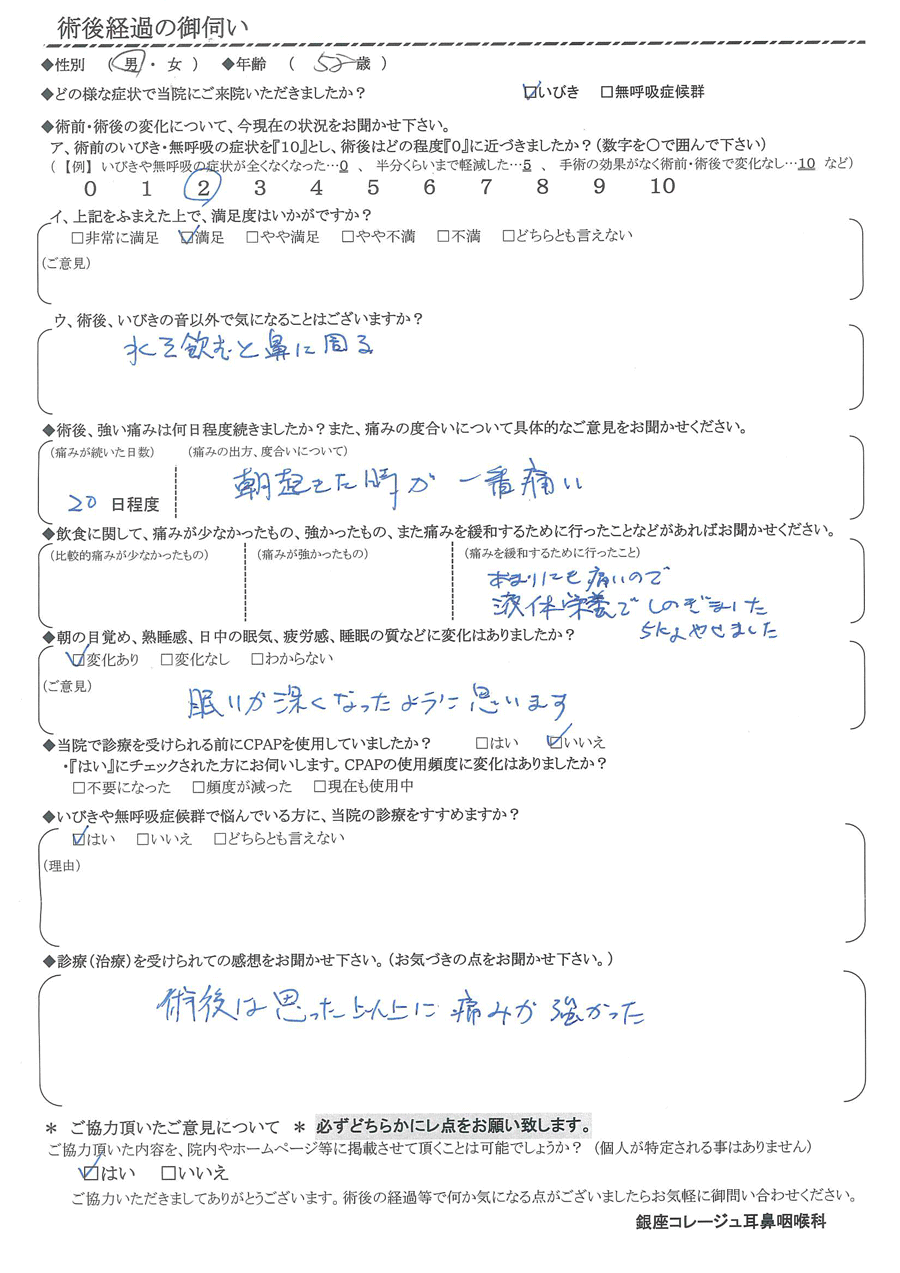 術後経過の御伺い
◆性別 （ 男 ・ 女 ） ◆年齢 （ 52 歳 ）
◆どの様な症状で当院にご来院いただきましたか？ ☑いびき □無呼吸症候群
◆術前・術後の変化について、今現在の状況をお聞かせ下さい。
ア、術前のいびき・無呼吸の症状を『10』とし、術後はどの程度『0』に近づきましたか？（数字を○で囲んで下さい）
（【例】いびきや無呼吸の症状が全くなくなった…0 、 半分くらいまで軽減した…5 、 手術の効果がなく術前・術後で変化なし…10 など）
0 1 2 3 4 5 6 7 8 9 10
イ、上記をふまえた上で、満足度はいかがですか？
□非常に満足 ☑満足 □やや満足 □やや不満 □不満 □どちらとも言えない
（ご意見）
ウ、術後、いびきの音以外で気になることはございますか？
水を飲むと鼻に回る
◆術後、強い痛みは何日程度続きましたか？また、痛みの度合いについて具体的なご意見をお聞かせください。
（痛みが続いた日数） （痛みの出方、度合いについて）
20 日程度 朝起きた時が一番痛い
◆飲食に関して、痛みが少なかったもの、強かったもの、また痛みを緩和するために行ったことなどがあればお聞かせください。
（比較的痛みが少なかったもの） （痛みが強かったもの） （痛みを緩和するために行ったこと）
あまりにも痛いので
液体栄養でしのぎました
5kgやせました
◆朝の目覚め、熟睡感、日中の眠気、疲労感、睡眠の質などに変化はありましたか？
☑変化あり □変化なし □わからない
（ご意見）
眠りが深くなったように思います
◆当院で診療を受けられる前にCPAPを使用していましたか？ □はい ☑いいえ
・『はい』にチェックされた方にお伺いします。CPAPの使用頻度に変化はありましたか？
□不要になった □頻度が減った □現在も使用中
◆いびきや無呼吸症候群で悩んでいる方に、当院の診療をすすめますか？
☑はい □いいえ □どちらとも言えない
（理由）
◆診療（治療）を受けられての感想をお聞かせ下さい。（お気づきの点をお聞かせ下さい。）
術後は思った以上に痛みが強かった
＊ ご協力頂いたご意見について ＊ 必ずどちらかにレ点をお願い致します。
ご協力頂いた内容を、院内やホームページ等に掲載させて頂くことは可能でしょうか？（個人が特定される事はありません）
☑はい □いいえ
ご協力いただきましてありがとうございます。術後の経過等で何か気になる点がございましたらお気軽に御問い合わせください。
銀座コレージュ耳鼻咽喉科